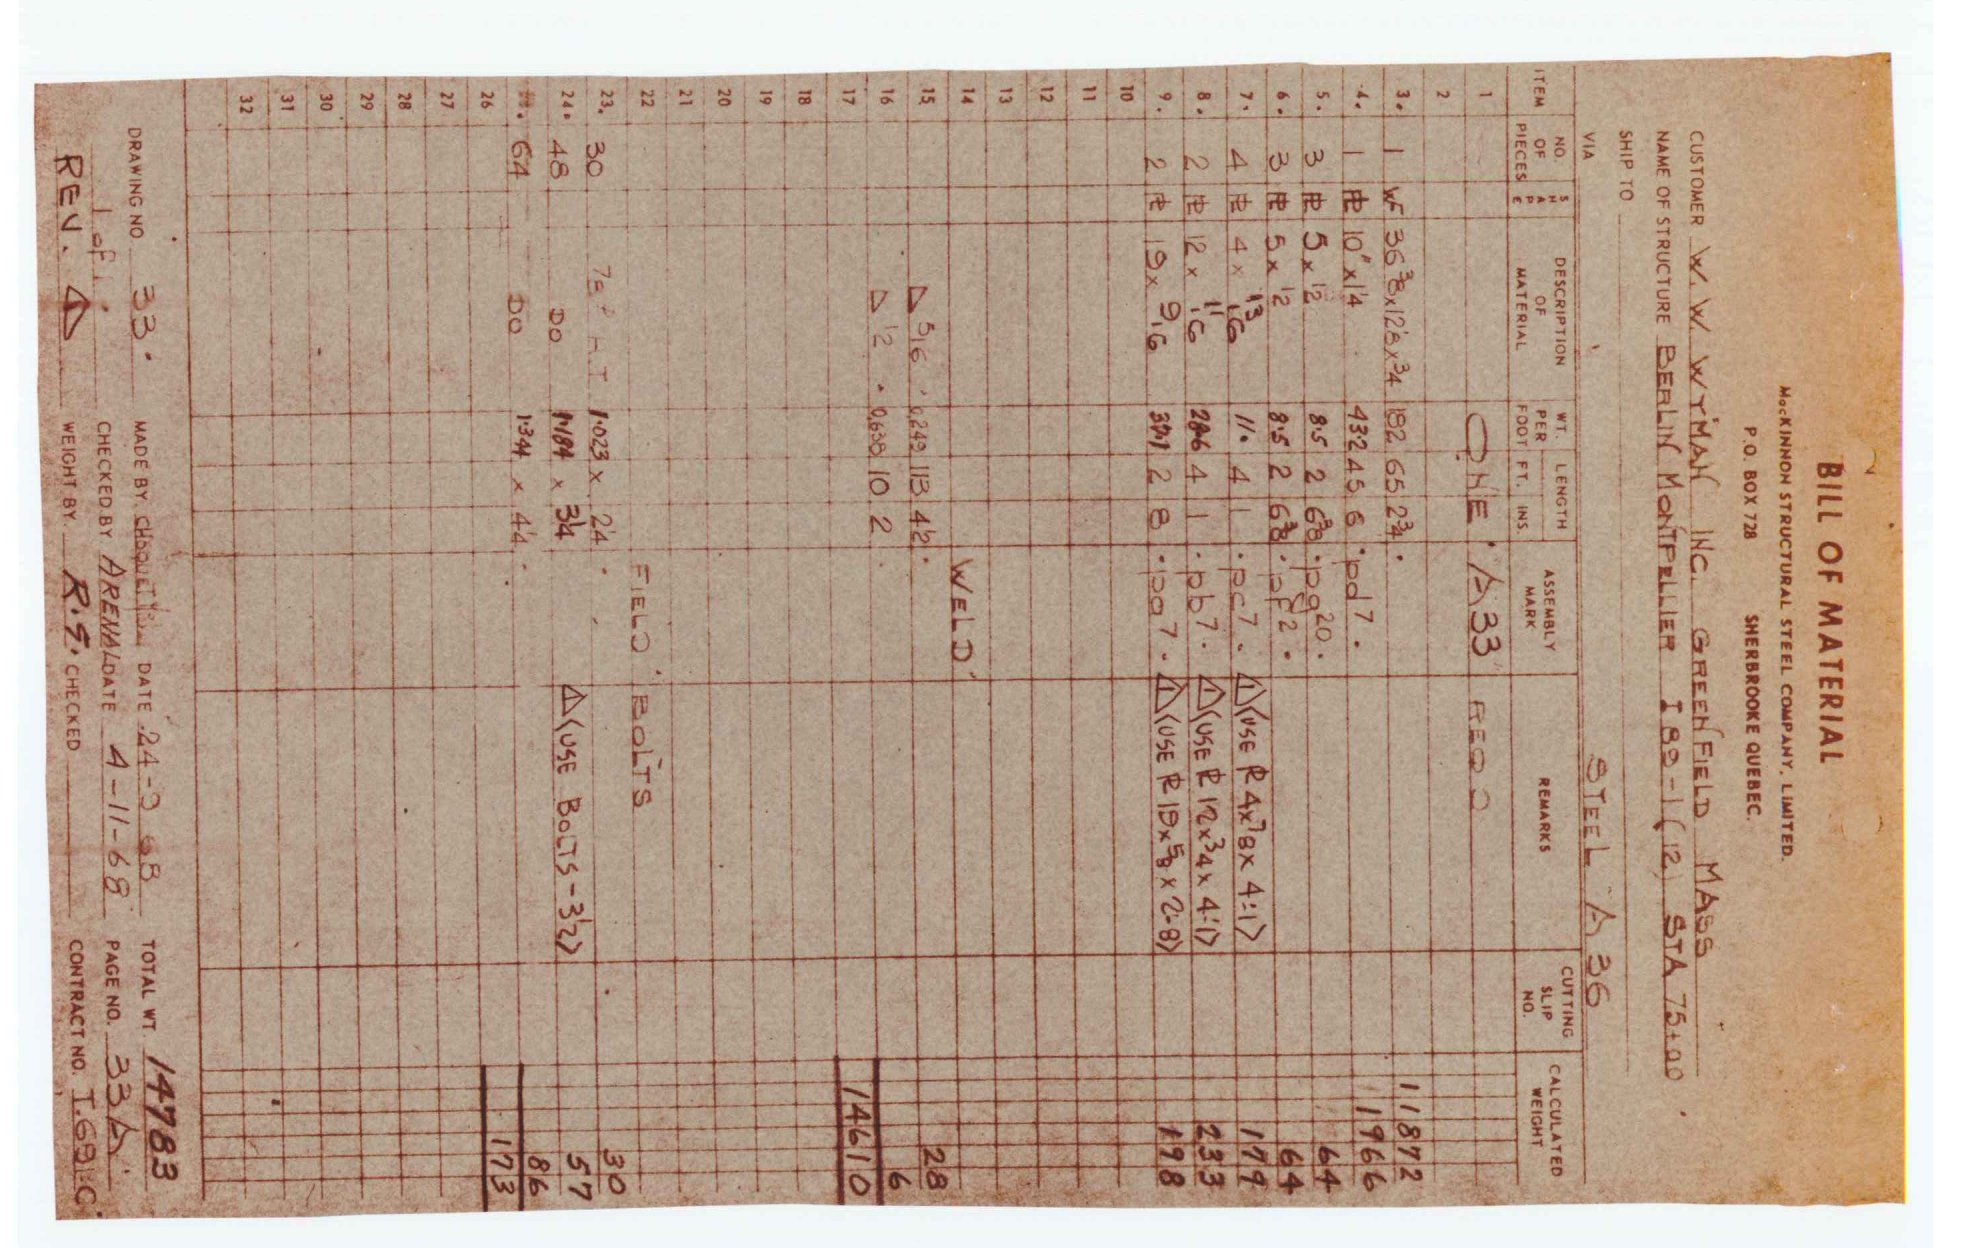 BILL OF MATERIAL
MacKINNON STRUCTURAL STEEL COMPANY, LIMITED.
P.O. BOX 728 SHERBROOKE QUEBEC.
CUSTOMER W. W. WYMAN INC. GREENFIELD MASS
NAME OF STRUCTURE BERLIN MONTPELLIER I 89-1(12) STA 75+00
SHIP TO
VIA STEEL A 36
ITEM NO. OF PIECES SHAPE DESCRIPTION OF MATERIAL WT. PER FOOT LENGTH FT. INS. ASSEMBLY MARK REMARKS CUTTING SLIP NO. CALCULATED WEIGHT
1 ONE A33 REQD
2
3. 1 WF 36 3/8 x 12 1/8 x 3/4 182 65 2 3/4 11872
4. 1 PL 10" x 1 1/4 43.2 45 6 pd7 1966
5. 3 PL 5 x 1/2 8.5 2 6 3/8 pg20 64
6. 3 PL 5 x 1/2 8.5 2 6 3/8 pf2 64
7. 4 PL 4 x 13/16 11. 4 1 pc7 △1 (USE PL 4 x 7/8 x 4:1) 179
8. 2 PL 12 x 11/16 28.6 4 1 pb7 △1 (USE PL 12 x 3/4 x 4:1) 233
9. 2 PL 19 x 9/16 37.1 2 8 pa7 △1 (USE PL 19 x 5/8 x 2:8) 198
10
11
12
13
14 WELD
15 △ 5/16 0.249 113 4 1/2 28
16 △ 1/2 0.638 10 2 6
17 14610
18
19
20
21
22 FIELD BOLTS
23. 30 7/8 H.T 1.023 x 2 1/4 30
24. 48 DO 1.184 x 3 1/4 △ (USE BOLTS - 3 1/2) 57
64 DO 1.344 x 4 1/4 86
26 173
27
28
29
30
31
32
DRAWING NO 33. MADE BY DATE 24-9 68 TOTAL WT. 14783
1 of 1 CHECKED BY ARENAL DATE 4-11-68 PAGE NO. 33A
REV. △ WEIGHT BY R.S. CHECKED CONTRACT NO. I.69.C